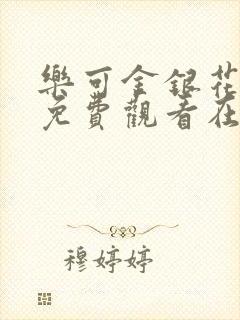 樂可金銀花
免費觀看在
穆婷婷